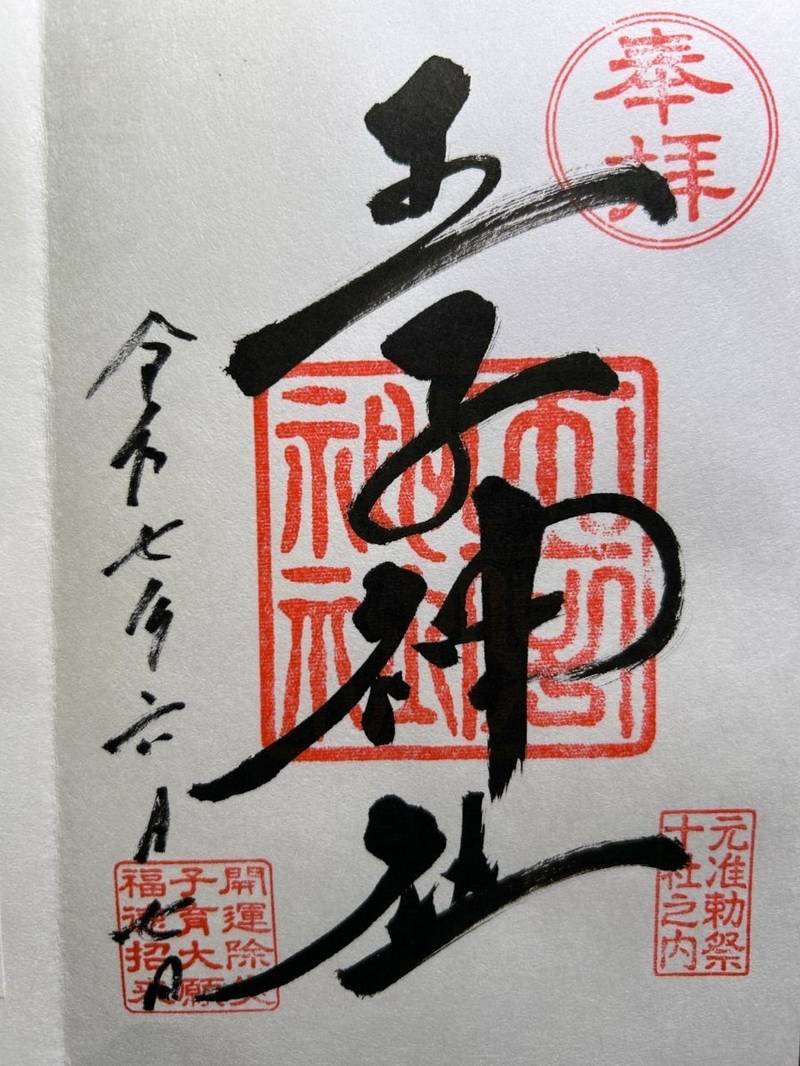 奉拝
王子神社
元准勅祭
十社之内
令和七年六月七日
開運除災
子育大願
福徳招来